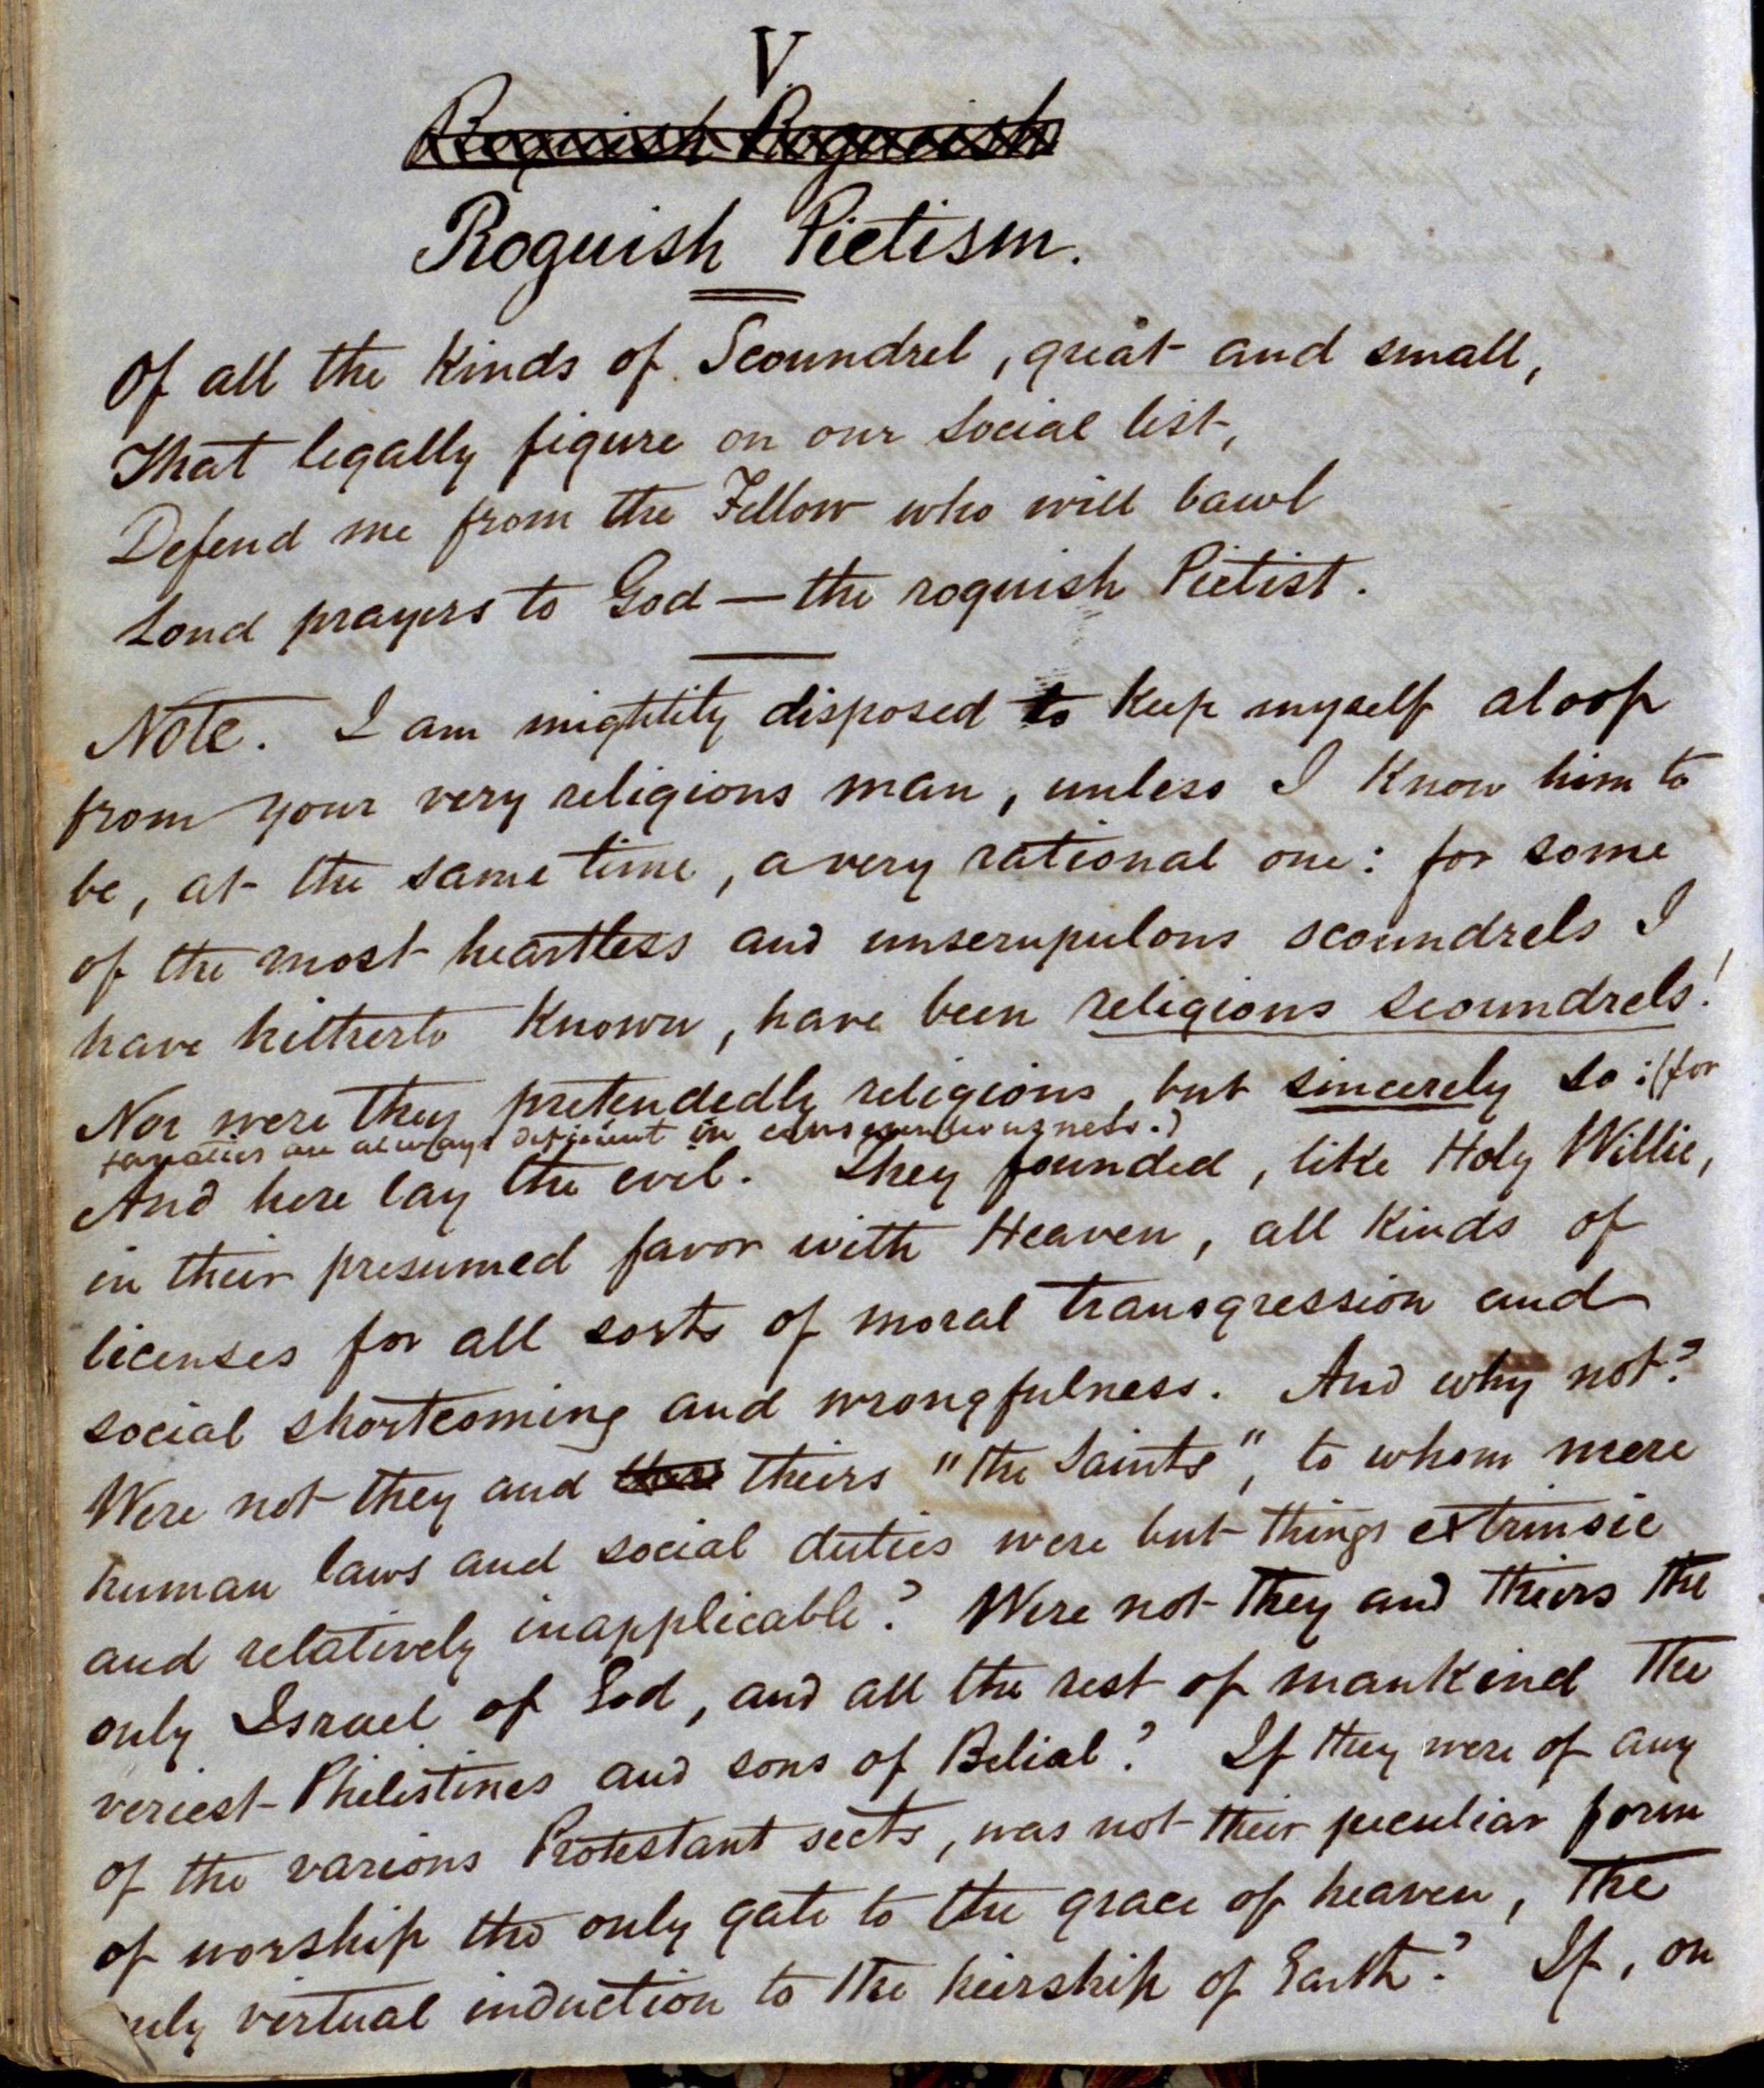 V.
Roguish Roguish
Roguish Pietism.
Of all the Kinds of Scoundrel, great and small,
That legally figure on our Social list,
Defend me from the Fellow who will bawl
Loud prayers to God — the roguish Pietist.
Note. I am mightily disposed to Keep myself aloof
from your very religious man, unless I Know him to
be, at the same time, a very rational one: for some
of the most heartless and unscrupulous scoundrels I
have hitherto Known, have been religious scoundrels!
Nor were they pretendedly religious, but sincerely so: (for
fanatics are always deficient in conscientiousness.)
And here lay the evil. They founded, like Holy Willie,
in their presumed favor with Heaven, all Kinds of
licenses for all sorts of moral transgression and
social shortcoming and wrongfulness. And why not?
Were not they and theirs "the Saints", to whom mere
human laws and social duties were but things extrinsic
and relatively inapplicable? Were not they and theirs the
only Israel of God, and all the rest of mankind the
veriest Philistines and sons of Belial? If they were of any
of the various Protestant sects, was not their peculiar form
of worship the only gate to the grace of heaven, the
only virtual induction to the heirship of Earth? If, on